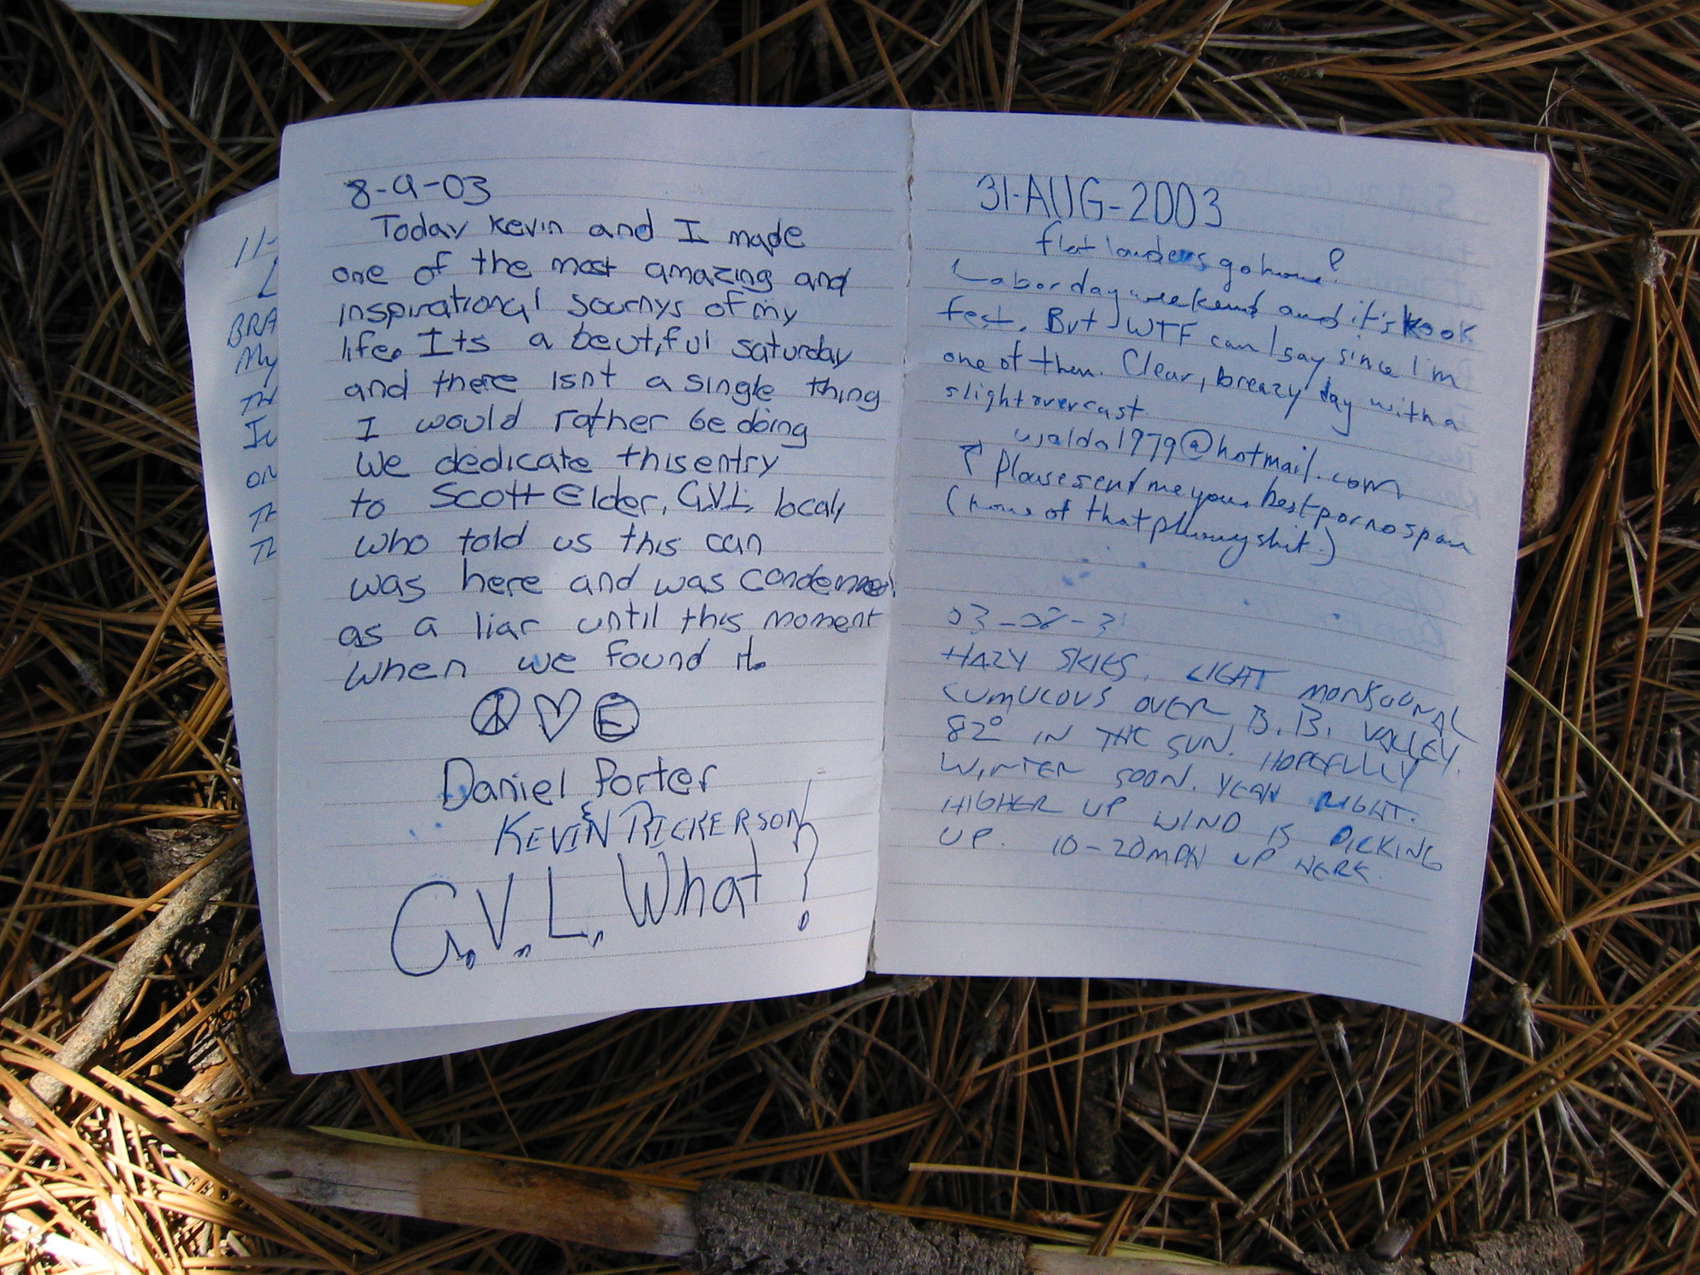 11-
L
BRA
My
TH
IN
ON
TH
TH
8-9-03
Today Kevin and I made
one of the most amazing and
inspirational journys of my
life. Its a beutiful saturday
and there isnt a single thing
I would rather be doing
We dedicate this entry
to Scott Elder, G.V.L. localy
who told us this can
was here and was condemned
as a liar until this moment
when we found it.
E
Daniel Porter
& KEVIN RICKERSON
G.V.L. What?
31-AUG-2003
flatlanders go home?
Labor day weekend and it's kook
fest. But WTF can I say since I'm
one of them. Clear, breazy day with a
slight overcast
waldo1979@hotmail.com
↑ Please send me your best porno spam
(none of that phoney shit.)
03-08-31
HAZY SKIES. LIGHT MONSOONAL
CUMULOUS OVER B.B. VALLEY.
82° IN THE SUN. HOPEFULLY
WINTER SOON. YEAH RIGHT.
HIGHER UP WIND IS PICKING
UP. 10-20MPH UP HERE.